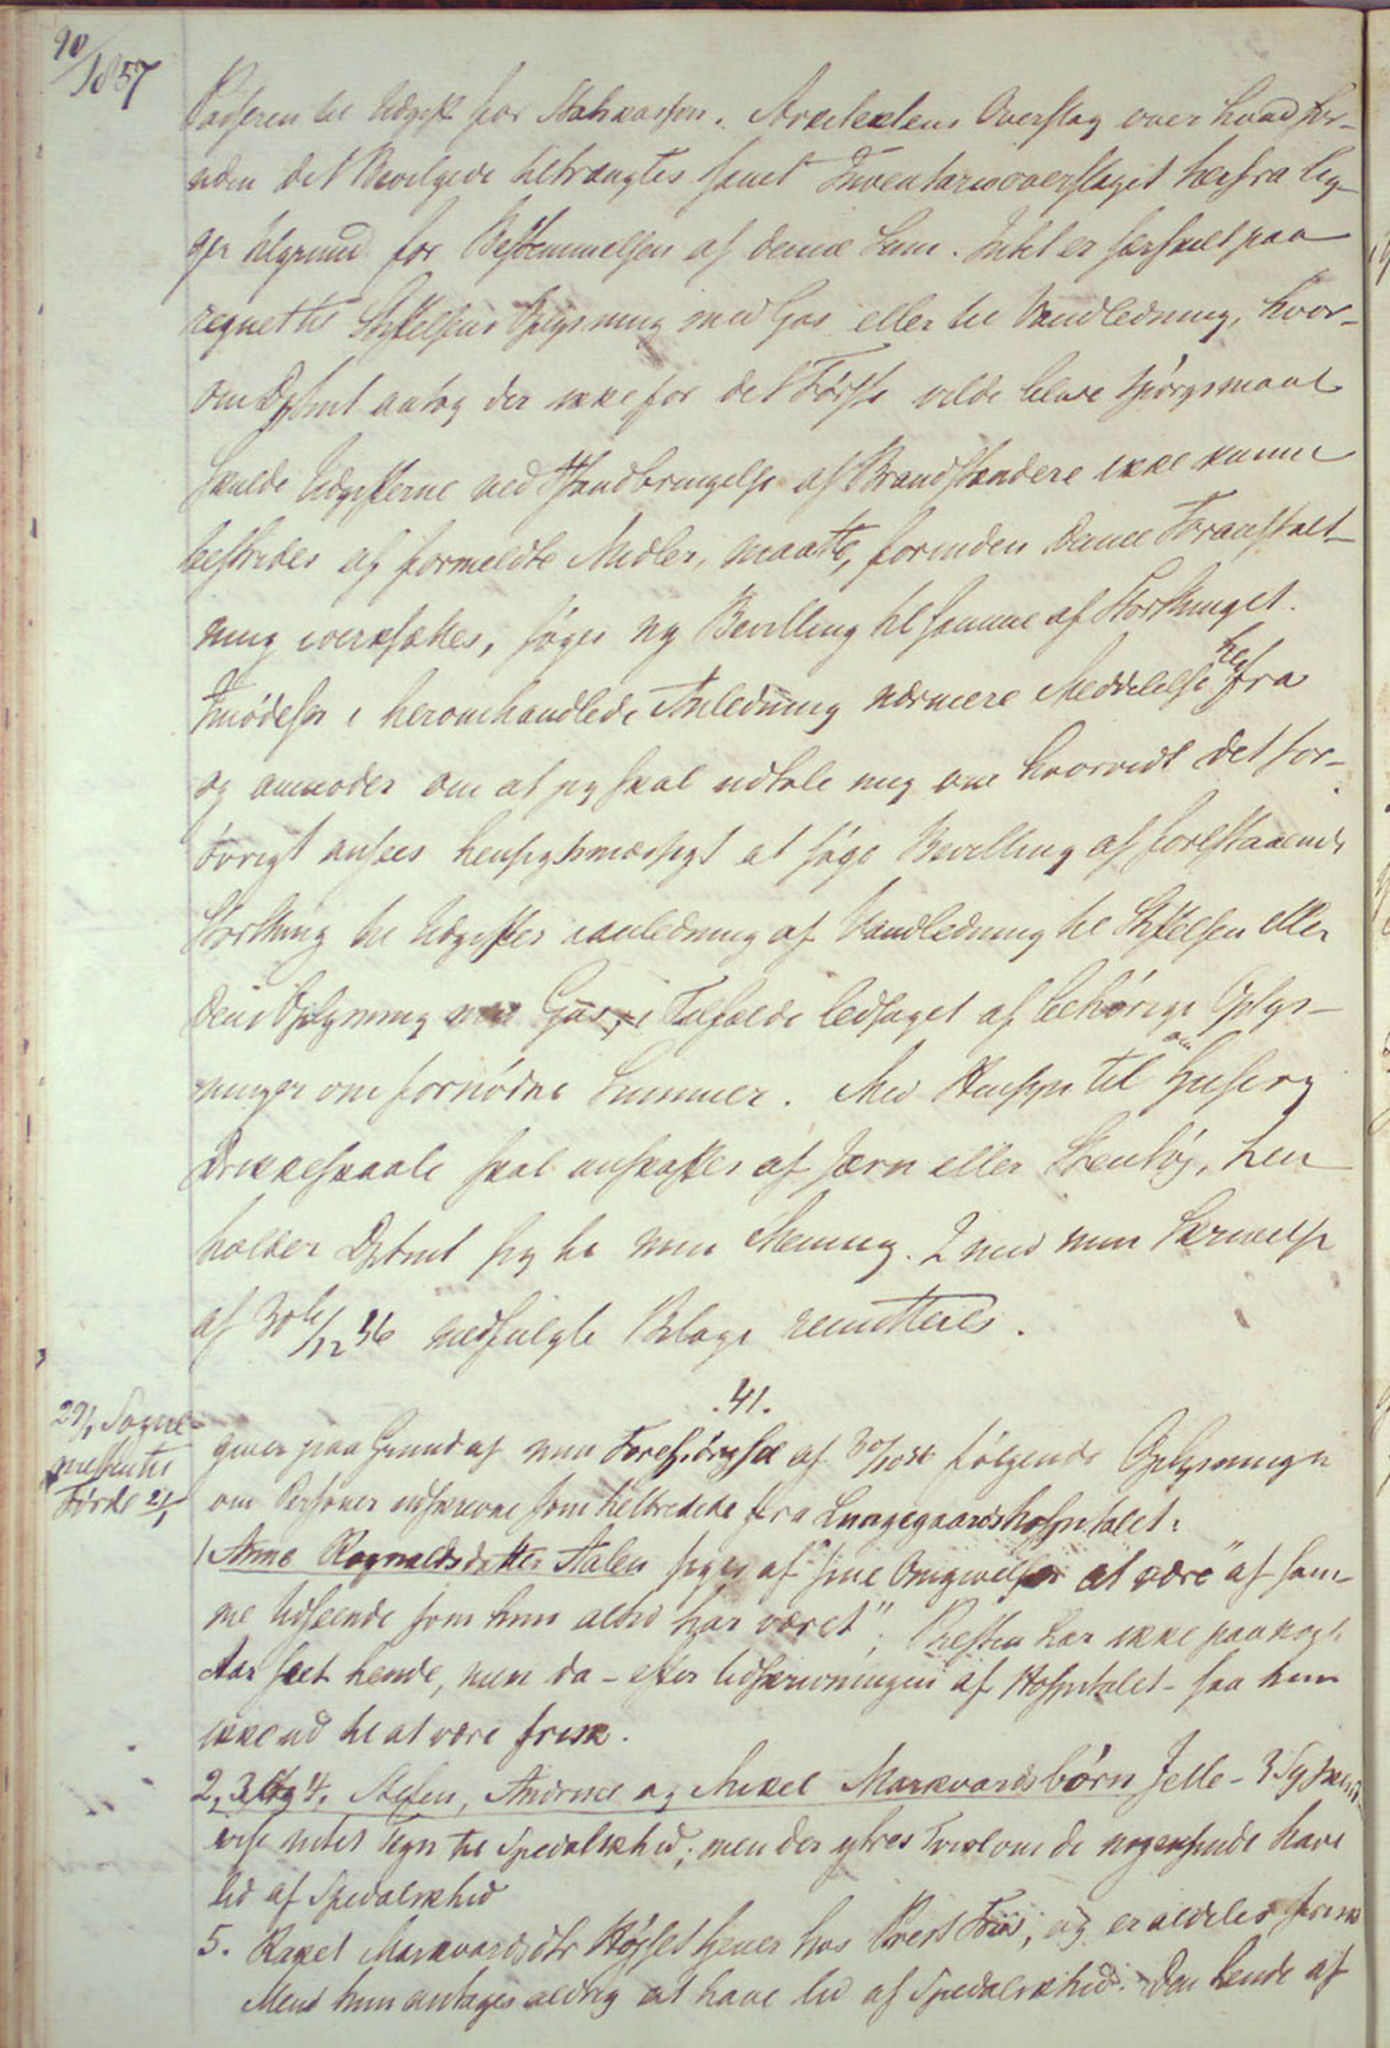 90/1857
Casseren til Udgift for Statskassen. Arkitektens Overslag over hvad for-
uden det Bevilgede tiltrængtes samt Inventarieoverslaget herfra lig-
ger tilgrund for Bestemmelsen af denne Sum. Intet er særskilt paa-
regnet til Stiftelsens Oplysning med Gas eller til Vandledning, hvor-
om Dptmt antog der ikke for det Første vilde blive Spørgsmaal
Skulde Udgifterne ved Istandbringelse af Brandstændere ikke kunne
bestrides af formeldte Midler, maatte, forinden denne Foranstalt-
ning iverksættes, søges ny Bevilling til samme af Storthinget.
Imødeser i heromhandlede Anledning nærmere Meddelelse herfra
og anmoder om at jeg skal udtale mig om hvorvidt det for-
øvrigt ansees hensigtsmæssigt at søge Bevilling af forestaaende
Storthing til Udgifter i anledning af Vandledning til Stiftelsen eller
dens Oplysning med Gas, i Tilfælde ledsaget af behørige Oplys-
ninger om fornødne Summer. Med Hensyn til om
Drikkeskaale skal anskaffes af Jern eller Stentøj, hen
holder Dptmt sig til min Mening. 2 med min Skrivelse
af 30te/12 56 medfulgte Bilage remitteres.
.41.
29/1 Sogne-
præsten til
Førde 21/1
giver paa Grund af min Forespørgsel af 30/10 56 følgende Oplysninger
om Personer udskrevne som helbredede fra Lungegaardshospitalet:
1 Anne Ragnaldsdatter Aalen siges af sine Omgivelser at være "af sam-
me Udseende som hun altid har været"; Presten har ikke paa nogle
Aar seet hende, men da - efter Udskrivningen af Hospitalet - saa hun
ikke ud til at være frisk.
2, 3 og 4, Steffen, Andrine og Mikel Markvardsbørn Jelle - 3 Sydskende
vise intet Tegn til Spedalskhed; men der ytres Tvivl om de nogensinde have
lid af Spedalskhed
5. Rakel Markvardsdtr tjener hos Prest Friis, og er aldeles frisk
Men hun antages aldrig at have lid af Spedalskhed. Den hende af